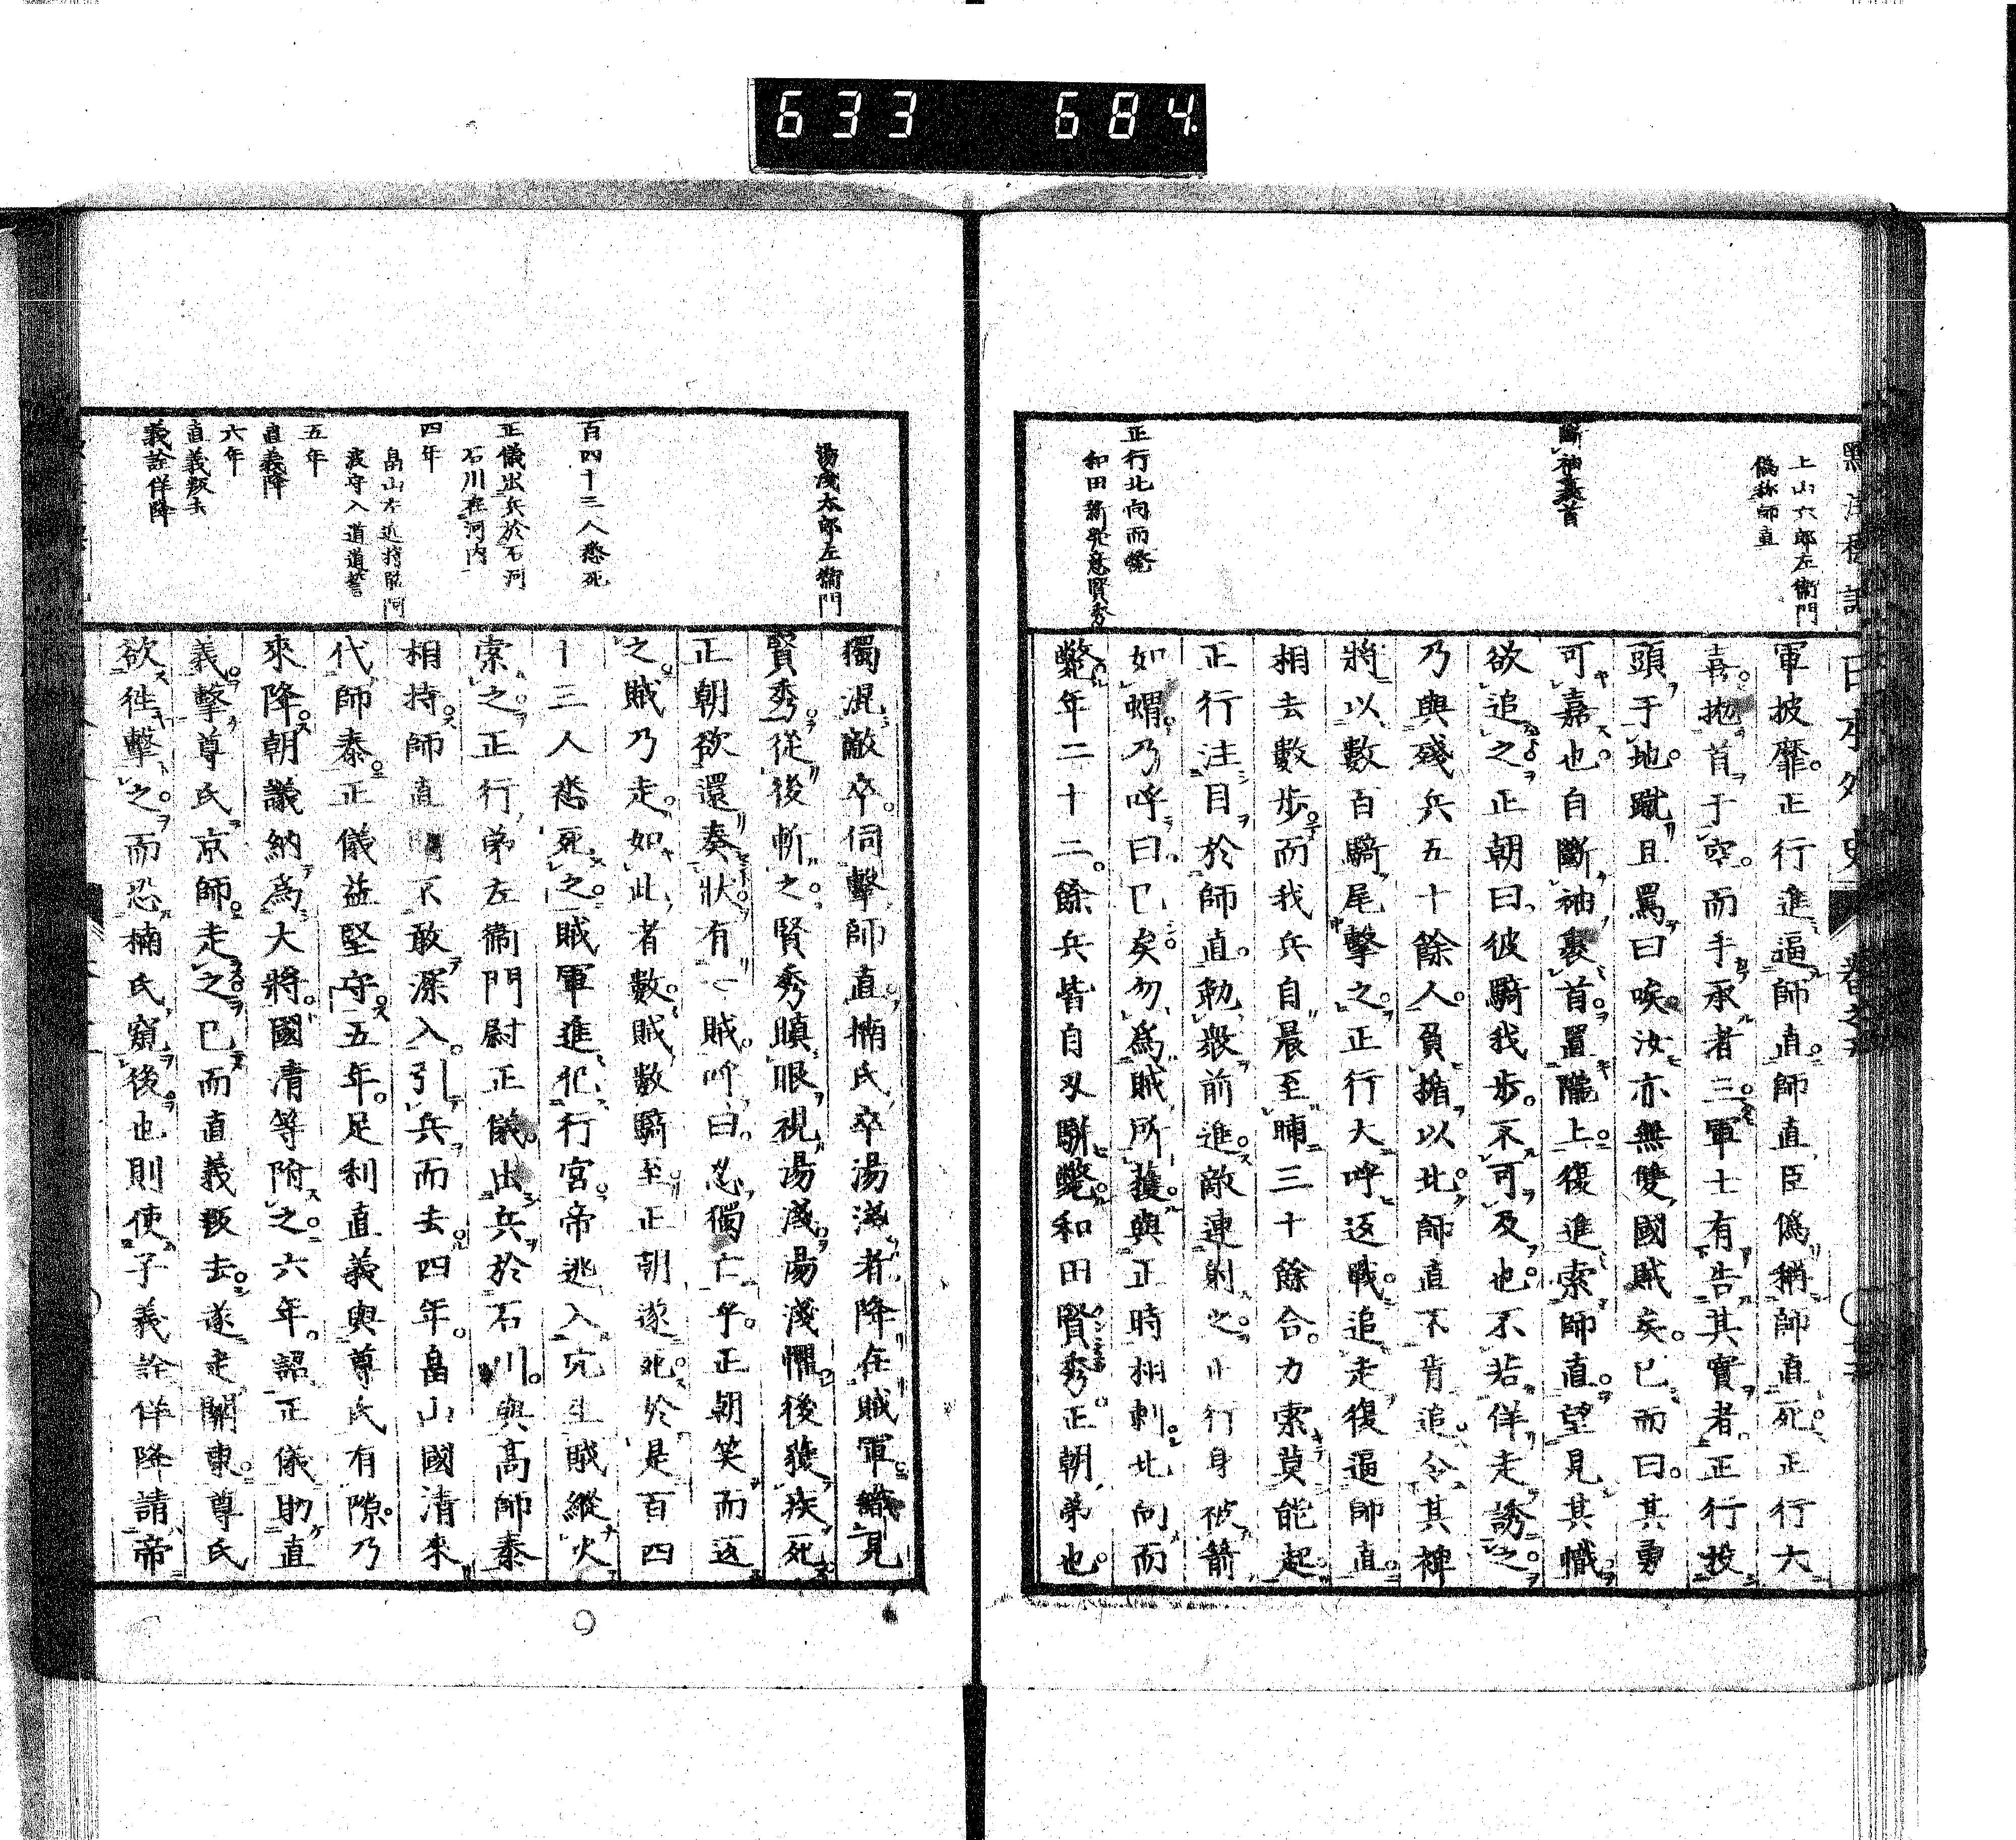 633 684
日本外史
上山六郎左衞門
偽称師直
斷袖裹首
正行北向而斃
和田新發意賢秀
軍披靡正行進逼師直師直臣偽稱師直死正行大
喜拋首于空而手承者三軍士有告其實者正行投
頭于地蹴且罵曰唉汝亦無雙國賊矣已而曰其勇
可嘉也自斷袖裹首置隴上復進索師直望見其幟
欲追之正朝曰彼騎我歩不可及也不若佯走誘之
乃與殘兵五十餘人負楯以北師直不肯追令其裨
將以數百騎尾擊之正行大呼返戰追走復逼師直
相去數歩而我兵自晨至晡三十餘合力索莫能起
正行注目於師直勅衆前進敵連射之正行身被箭
如蝟乃呼曰已矣勿為賊所獲與正時相刺北向而
斃年二十二餘兵皆自刄駢斃和田賢秀正朝弟也
湯淺太郎左衞門
百四十三人悉死
正儀出兵於石河
石川在河内
四年
畠山左近將監阿
波守入道道誓
五年
直義降
六年
直義叛去
義詮佯降
獨混敵卒伺擊師直楠氏卒湯淺者降在賊軍識見
賢秀從後斬之賢秀瞋眼視湯淺湯淺懼後獲疾死
正朝欲還奏狀有一賊呼曰忍獨亡乎正朝笑而返
之賊乃走如此者數賊數騎至正朝遂死於是百四
十三人悉死之賊軍進犯行宮帝逃入穴生賊縱火
索之正行弟左衞門尉正儀出兵於石川與高師泰
相持師直不敢深入引兵而去四年畠山國清來
代師泰正儀益堅守五年足利直義與尊氏有隙乃
來降朝議納為大將國清等附之六年詔正儀助直
義擊尊氏京師走之已而直義叛去遂走關東尊氏
欲往擊之而恐楠氏窺後也則使子義詮佯降請帝